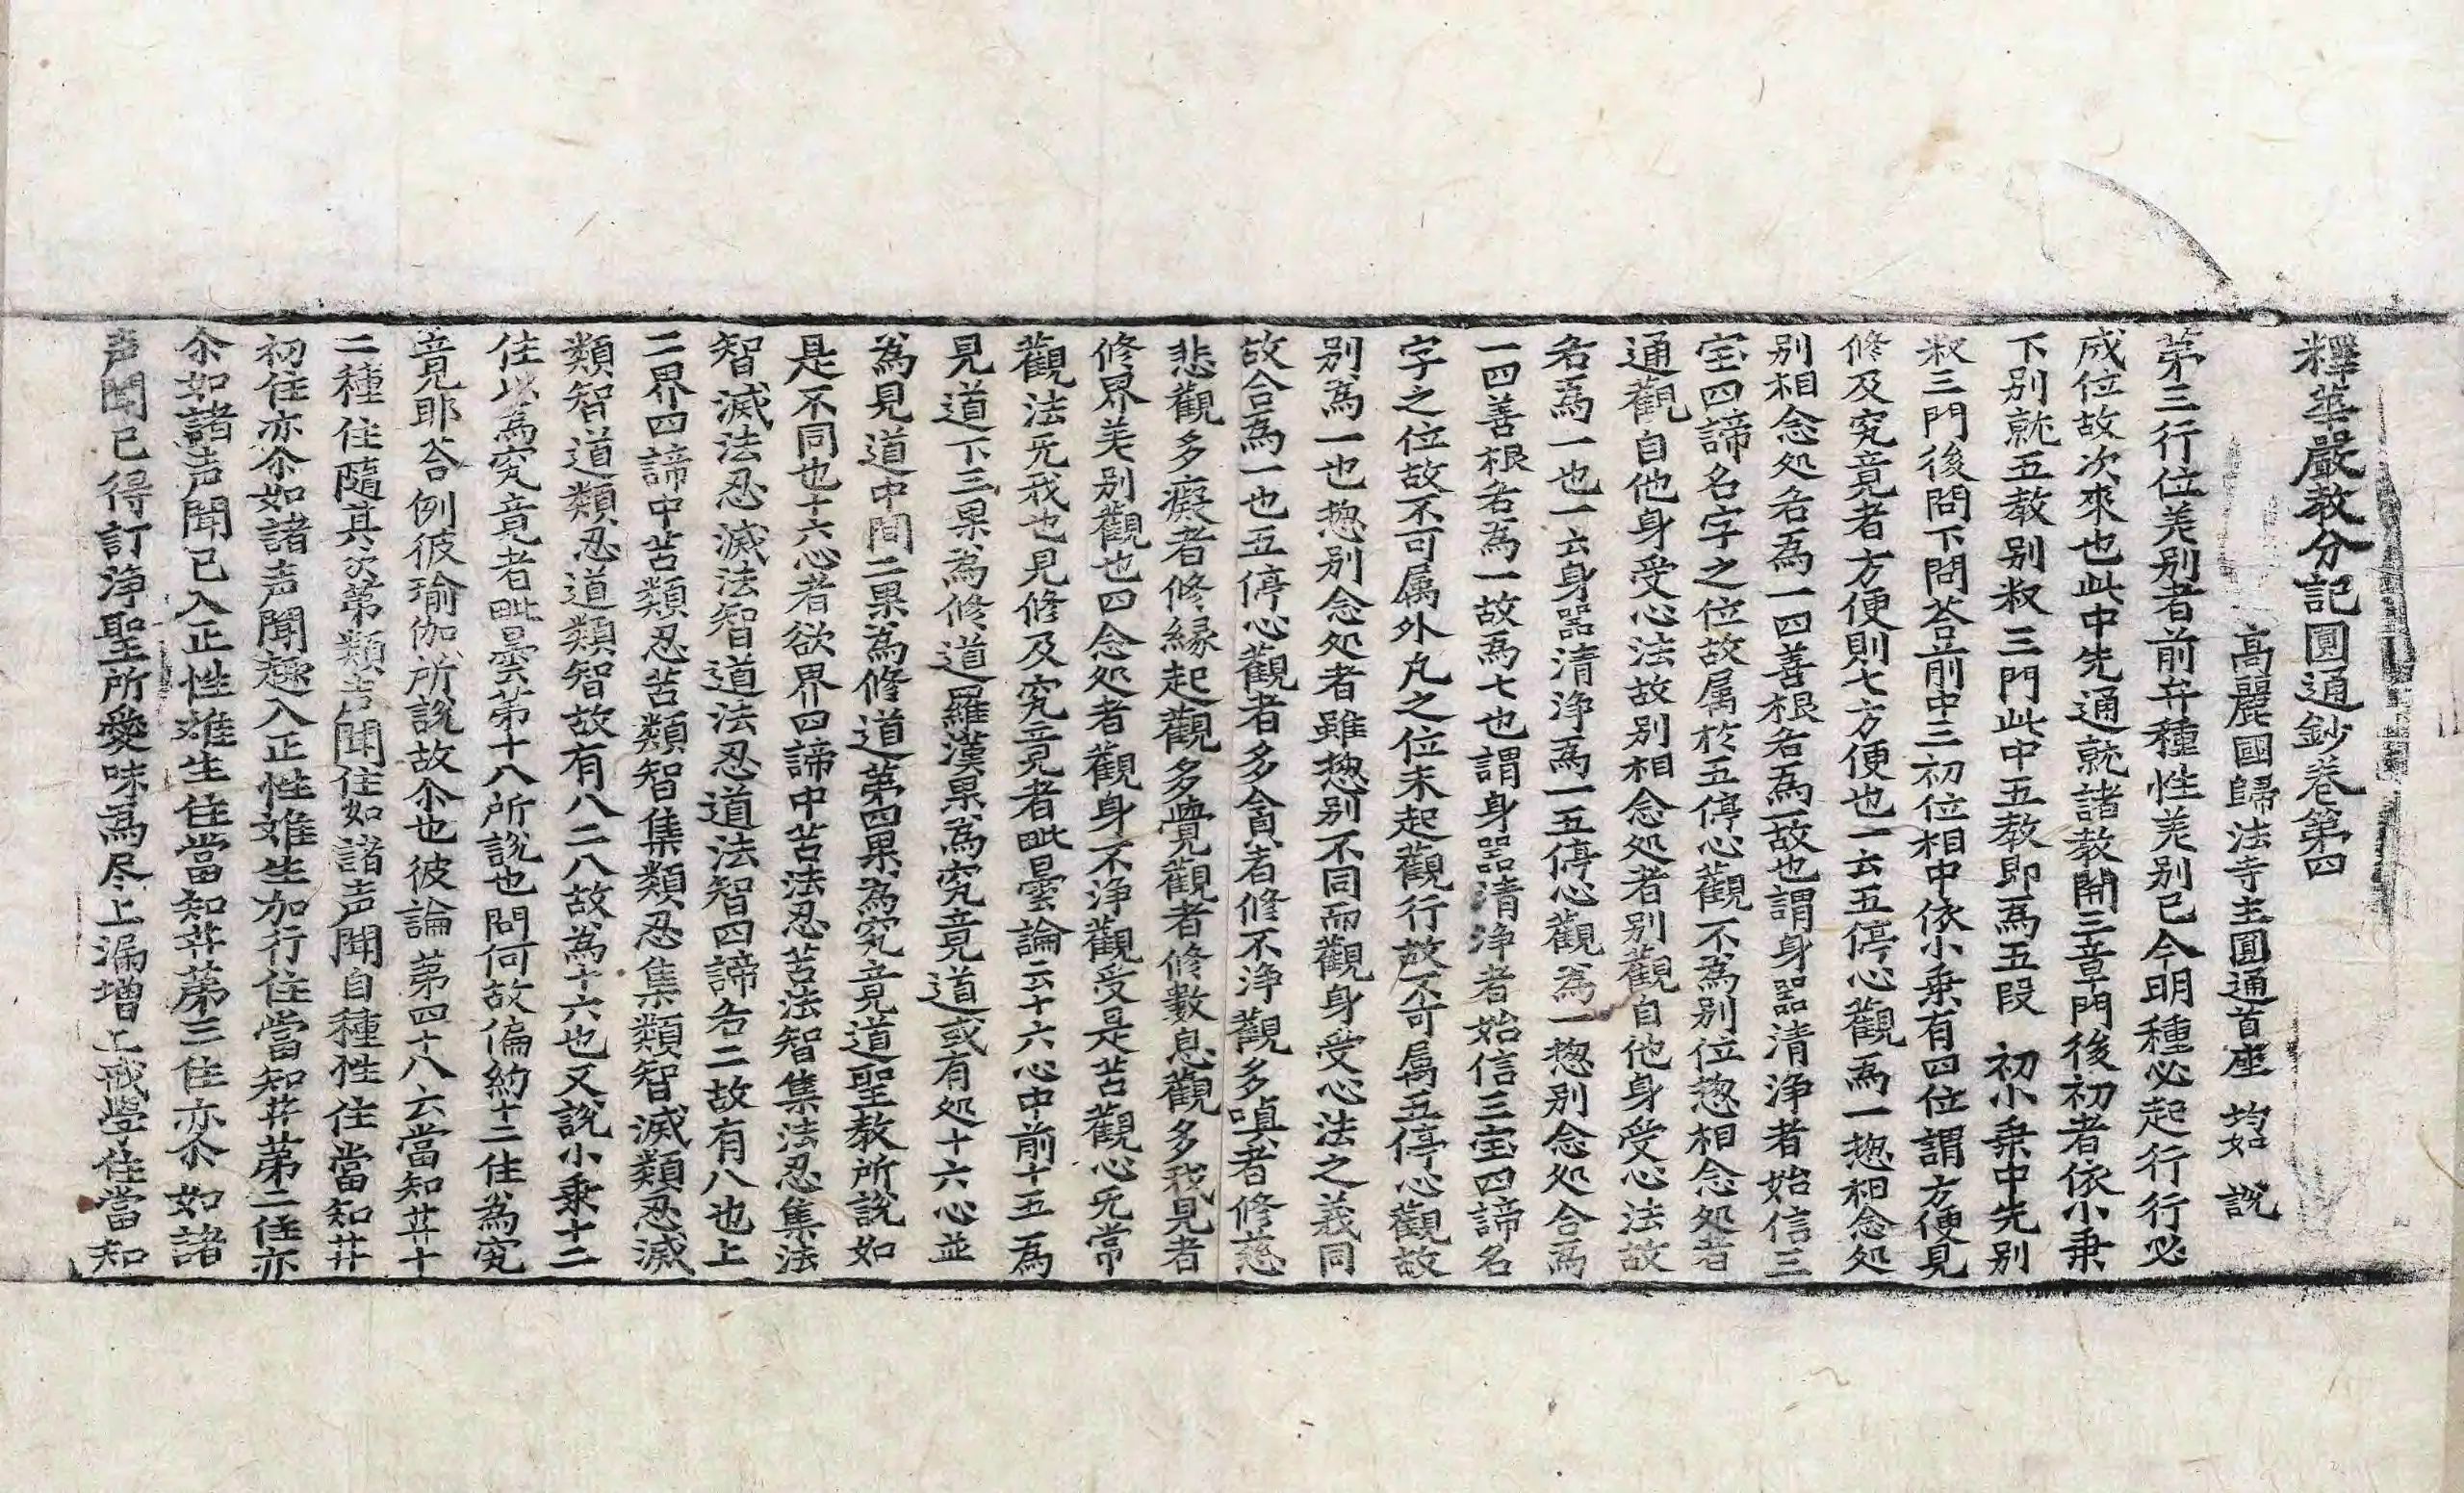 釋華嚴教分記圓通鈔卷第四
高麗國歸法寺主圓通首座 均如 說
第三行位差别者前弁種性差别已今明種必起行行必
成位故次來也此中先通就諸教開三章門後初者依小乗
下别就五教别叙三門此中五教即為五段 初小乗中先别
叙三門後問下問荅前中三初位相中依小乗有四位謂方便見
修及究竟者方便則七方便也一云五停心觀為一揔相念処
别相念処名為一四善根名為一故也謂身器清淨者始信三
宝四諦名字之位故属於五停心觀不為别位揔相念処者
通觀自他身受心法故别相念処者别觀自他身受心法故
名為一也一云身器清淨為一五停心觀為一揔别念処合為
一四善根名為一故為七也謂身器清淨者始信三宝四諦名
字之位故不可属外凡之位未起觀行故不可属五停心觀故
别為一也揔别念処者雖揔别不同而觀身受心法之義同
故合為一也五停心觀者多貪者修不淨觀多嗔者修慈
悲觀多癡者修緣起觀多覺觀者修數息觀多我見者
修界差别觀也四念処者觀身不淨觀受是苦觀心无常
觀法无我也見修及究竟者毗曇論云十六心中前十五為
見道下三果為修道羅漢果為究竟道或有処十六心並
為見道中間二果為修道第四果為究竟道聖教所說如
是不同也十六心者欲界四諦中苦法忍苦法智集法忍集法
智滅法忍滅法智道法忍道法智四諦各二故有八也上
二界四諦中苦類忍苦類智集類忍集類智滅類忍滅
類智道類忍道類智故有八二八故為十六也又說小乗十二
住此為究竟者毗曇第十八所說也問何故偏約十二住為究
竟耶荅例彼瑜伽所說故尒也彼論第四十八云當知菩十
二種住隨其次第類声聞住如諸声聞自種性住當知菩
初住亦尒如諸声聞趣入正性離生加行住當知菩第二住亦
尒如諸声聞已入正性離生住當知菩第三住亦尒如諸
声聞已得訂淨聖所愛味為尽上漏增上戒學住當知